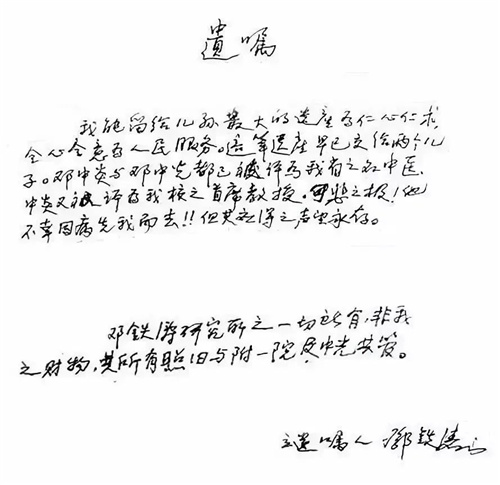 遗嘱
我能留给儿孙最大的遗产为仁心仁术,
全心全意为人民服务。这笔遗产早已交给两个儿
子。邓中炎与邓中光都已被评为我省之名中医,
中炎又被评为我校之首席教授。可悲之极!他
不幸因病先我而去!!但其应得之声望永存。
邓铁涛研究所之一切所有,非我
之财物,其所有照旧与附一院及中光共管。
立遗嘱人 邓铁涛